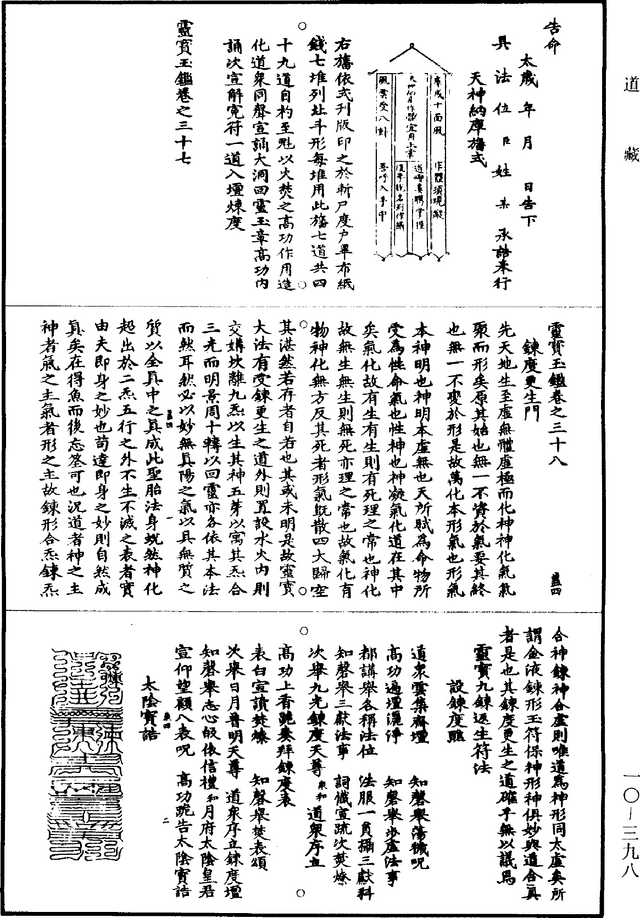 道藏
告命
太歲 年 月 日告下
具 法 位 臣 姓 某 承誥奉行
天神納庫旛式
右旛依式刊版印之於新尸度戶單布紙
錢七堆列北斗形每堆用此旛七道共四
十九道自杓至魁以火焚之高功作用造
化道衆同聲宣誦大洞回靈玉章高功內
誦次宣解寃符一道入壇煉度
靈寳玉鑑卷之三十七
靈寳玉鑑卷之三十八
鍊度更生門
先天地生至虛無體虛極而化神神化氣氣
聚而形矣原其始也無一不資於氣要其終
也無一不變於形是故萬化本形氣也形氣
本神明也神明本虛無也天所賦為命物所
受為性命氣也性神也神凝氣化道在其中
矣氣化故有生有生則有死理之常也神化
故無生無生則無死亦理之常也故氣化有
物神化無方反其死者形氣既散四大歸空
其湛然若存者自若也其或未明是故靈寳
大法有受鍊更生之道外則置設水火內則
交媾坎離九炁以生其神五芽以寓其炁合
三光而明景周十轉以回靈亦各依其本法
而然耳然必以妙無真陽之氣以具無質之
質以全真中之真成此聖胎法身蛻然神化
超出於二炁五行之外不生不滅之表者實
由夫即身之妙也苟達即身之妙則自然成
真矣在得魚而後忘筌可也況道者神之主
神者氣之主氣者形之主故鍊形合炁鍊炁
合神鍊神合虛則唯道為神形同太虛矣所
謂金液鍊形玉符保神形神俱妙與道合真
者是也其鍊度更生之道確乎無以議為
靈寳九鍊返生符法
設鍊度醮
道衆雲集齋壇 知磬舉蕩穢呪
高功遍壇灑淨 知磬舉步虛法事
都講舉各稱法位 法服一員攝三獻科
知磬舉三獻法事 詞懺宣疏次焚燎
次舉九光鍊度天尊 衆和 道衆序立
高功上香跪奏拜鍊度表
表白宣讀焚燎 知磬舉焚表頌
次舉日月普明天尊 道衆序立鍊度壇
知磬舉志心皈依信禮 和 月府太陰皇君
宣仰望願八表呪 高功跪告太陰寳誥
太陰寳誥
一〇—三九八